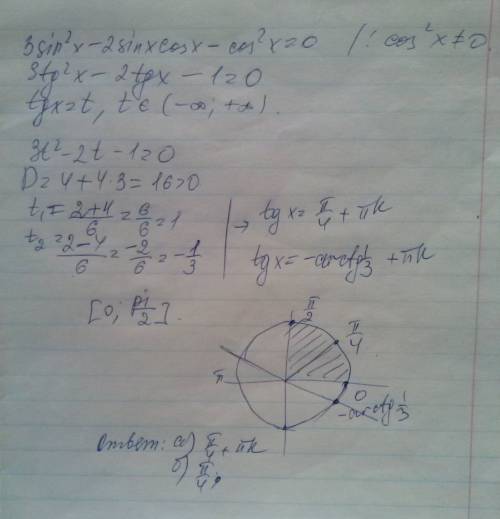 3sin²x-2sinxcosx-cos²x=0 /: cos²x≠0
3tg²x-2tgx-1=0
tgx=t, t∈(-∞;+∞).
3t²-2t-1=0
D=4+4·3=16>0
t₁=(2+4)/6=6/6=1
t₂=(2-4)/6=-2/6=-1/3
→ tgx=π/4+πk
tgx=-arctg1/3+πk
[0; Pi/2].
π/2
π/4
π
0
-arctg1/3
Ответ: а) π/4+πk
б) π/4;